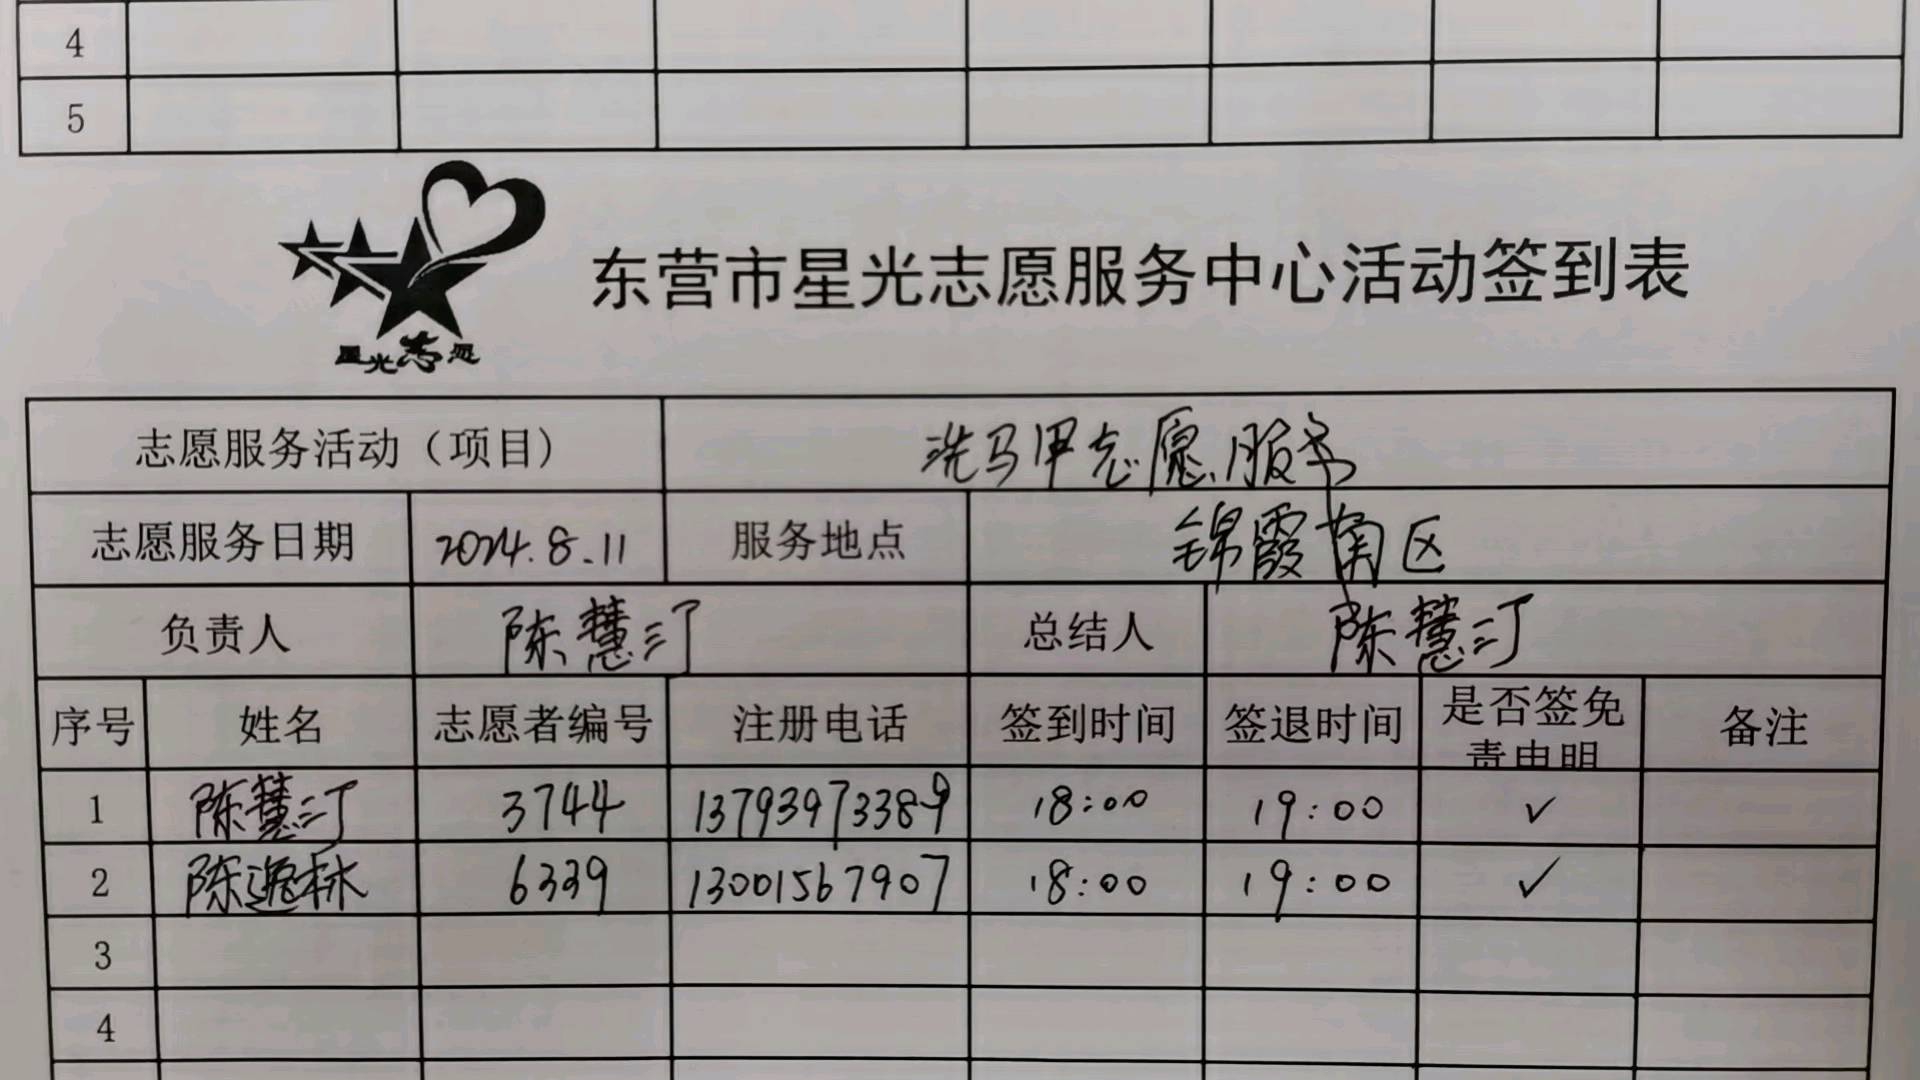 4
5
星光志愿
东营市星光志愿服务中心活动签到表
志愿服务活动（项目） 洗马甲志愿服务
志愿服务日期 2024.8.11 服务地点 锦霞南区
负责人 陈慧汀 总结人 陈慧汀
序号 姓名 志愿者编号 注册电话 签到时间 签退时间 是否签免责申明 备注
1 陈慧汀 3744 13793973389 18:00 19:00 ✓
2 陈逸林 6339 13001567907 18:00 19:00 ✓
3
4